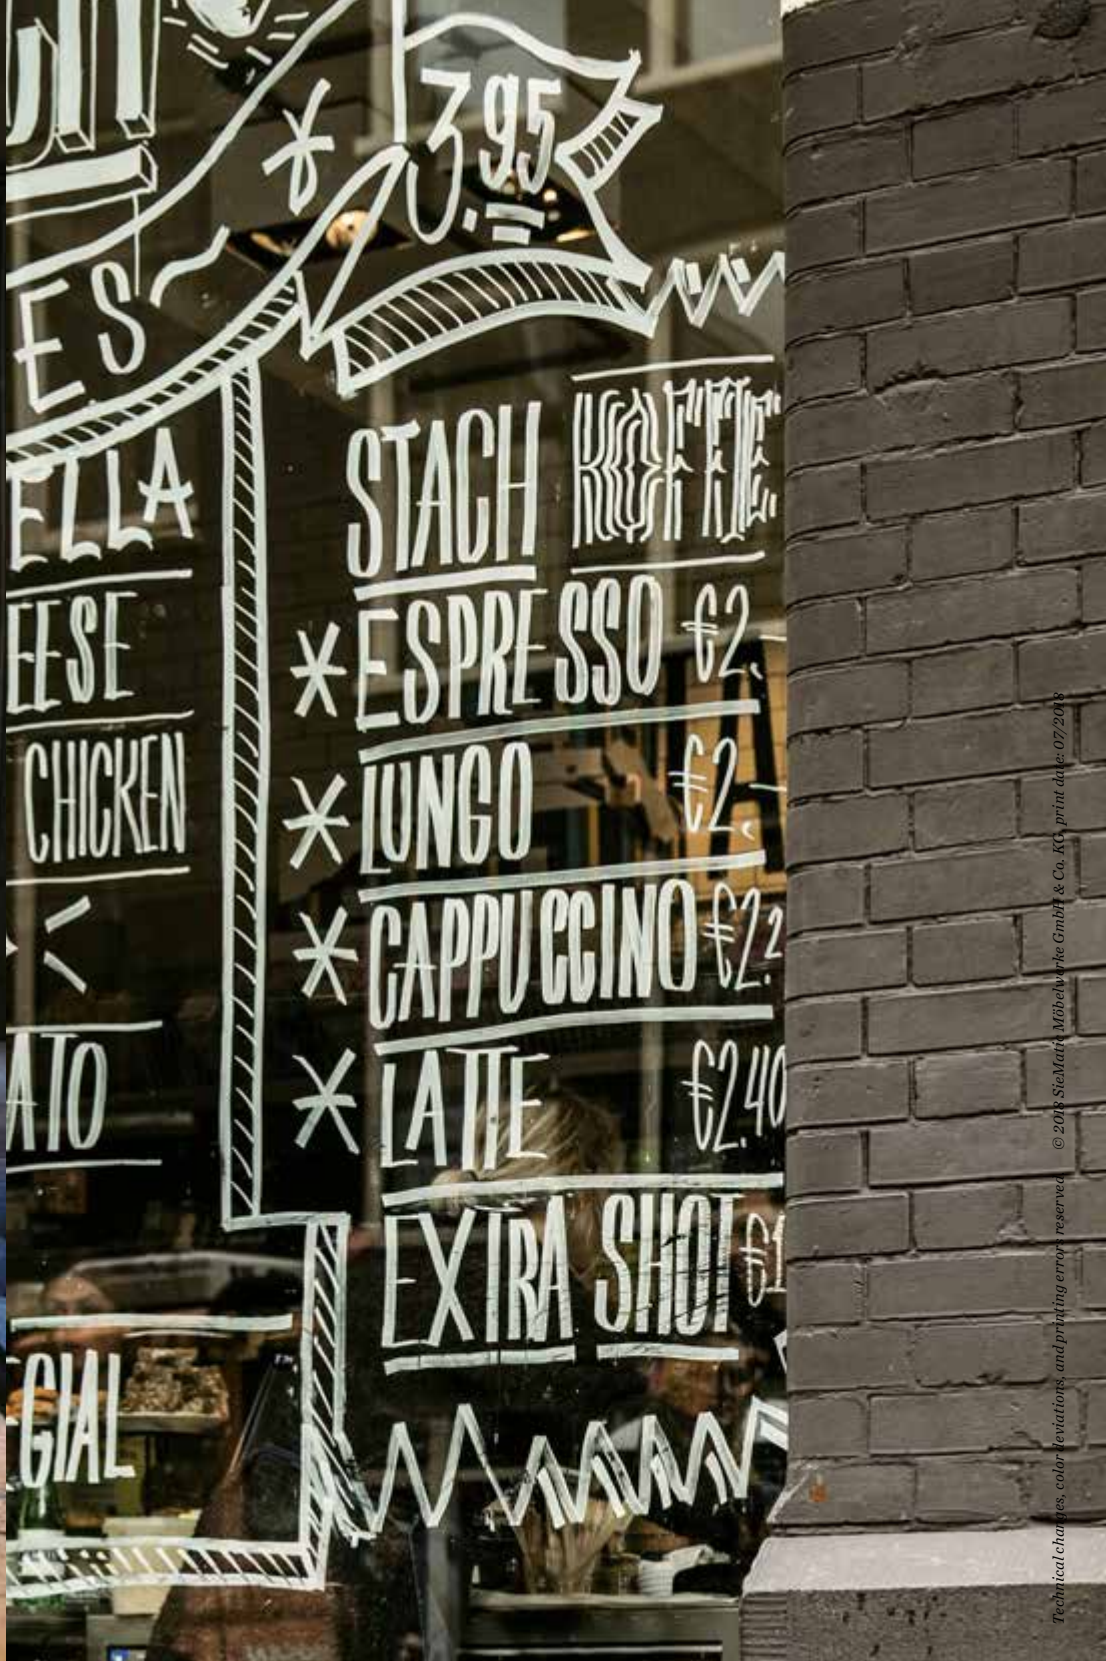 3.95
ES
ELLA
EESE
CHICKEN
ATO
GIAL
STACH KOFFIE
* ESPRESSO €2.-
* LUNGO €2.-
* CAPPUCCINO €2.2
* LATTE €2.40
EXTRA SHOT €1
Technical changes, color deviations, and printing errors reserved. © 2018 SieMatic Möbelwerke GmbH & Co. KG, print date: 07/2018